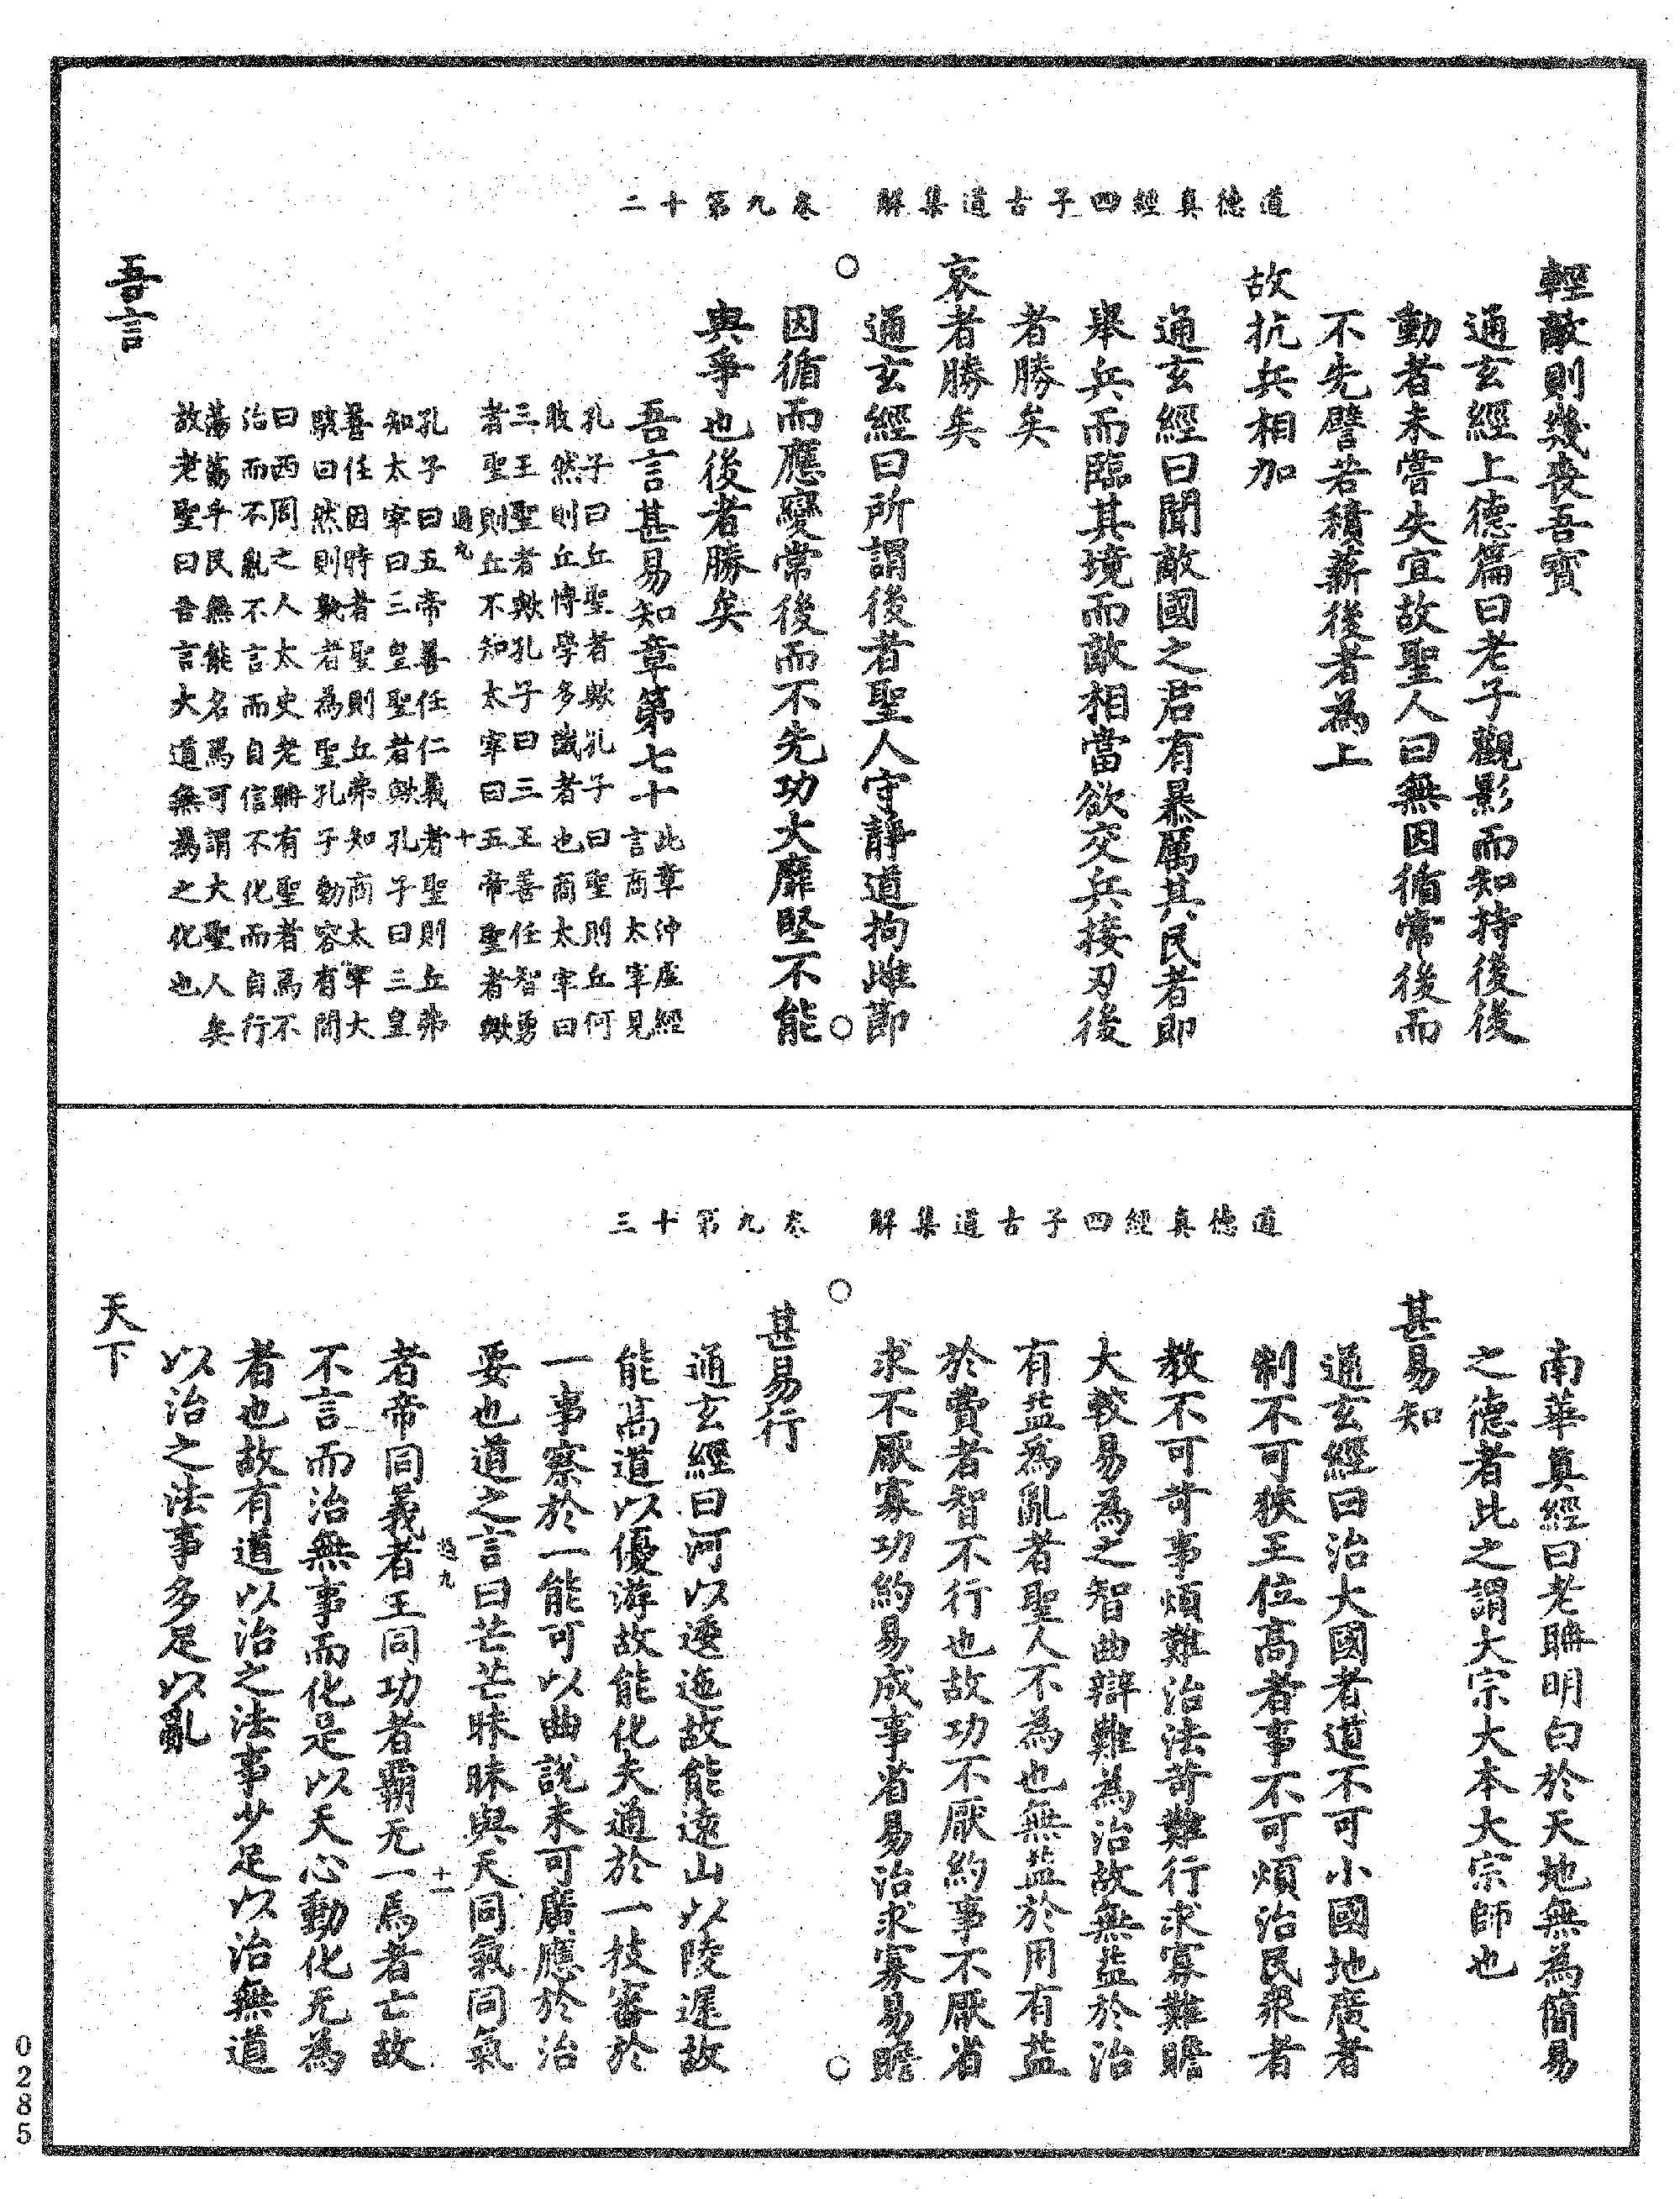 道德真經四子古道集解　卷九第十二
輕敵則幾喪吾寶
通玄經上德篇曰老子觀影而知持後後
動者未嘗失宜故聖人曰無因循常後而
不先譬若積薪後者為上
故抗兵相加
通玄經曰聞敵國之君有暴厲其民者即
舉兵而臨其境而敵相當欲交兵接刃後
者勝矣
哀者勝矣
通玄經曰所謂後者聖人守靜道拘雌節
因循而應變常後而不先功大靡堅不能
與爭也後者勝矣
吾言甚易知章第七十
此章沖虛經
言商太宰見
孔子曰丘聖者歟孔子曰聖則丘何
敢然則丘博學多識者也商太宰曰
三王聖者歟孔子曰三王善任智勇
者聖則丘不知太宰曰五帝聖者歟
過九
十
孔子曰五帝善任仁義者聖則丘弗
知太宰曰三皇聖者歟孔子曰三皇
善任因時者聖則丘弗知商太宰大
駭曰然則孰者為聖孔子動容有間
曰西周之人太史老聃有聖者焉不
治而不亂不言而自信不化而自行
蕩蕩乎民無能名焉可謂大聖人矣
故老聖曰吾言大道無為之化也
吾言
道德真經四子古道集解　卷九第十三
南華真經曰老聃明白於天地無為簡易
之德者此之謂大宗大本大宗師也
甚易知
通玄經曰治大國者道不可小國地廣者
制不可狹王位高者事不可煩治民眾者
教不可苛事煩難治法苛難行求寡難贍
大較易為之智曲辯難為治故無益於治
有益為亂者聖人不為也無益於用有益
於費者智不行也故功不厭約事不厭省
求不厭寡功約易成事省易治求寡易贍
甚易行
通玄經曰河以逶迤故能遠山以陵遲故
能高道以優游故能化夫通於一技審於
一事察於一能可以曲說未可廣應於治
要也道之言曰芒芒昧昧與天同氣同氣
過九
十一
者帝同義者王同功者霸无一焉者亡故
不言而治無事而化是以天心動化无為
者也故有道以治之法事少足以治無道
以治之法事多足以亂
天下
0285